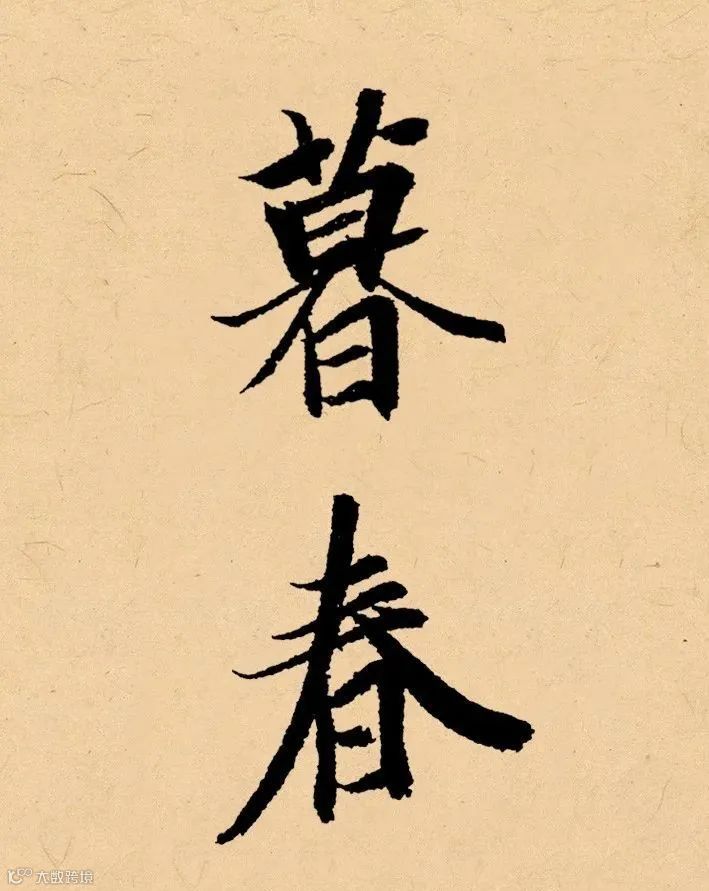 暮
春
大数跨境